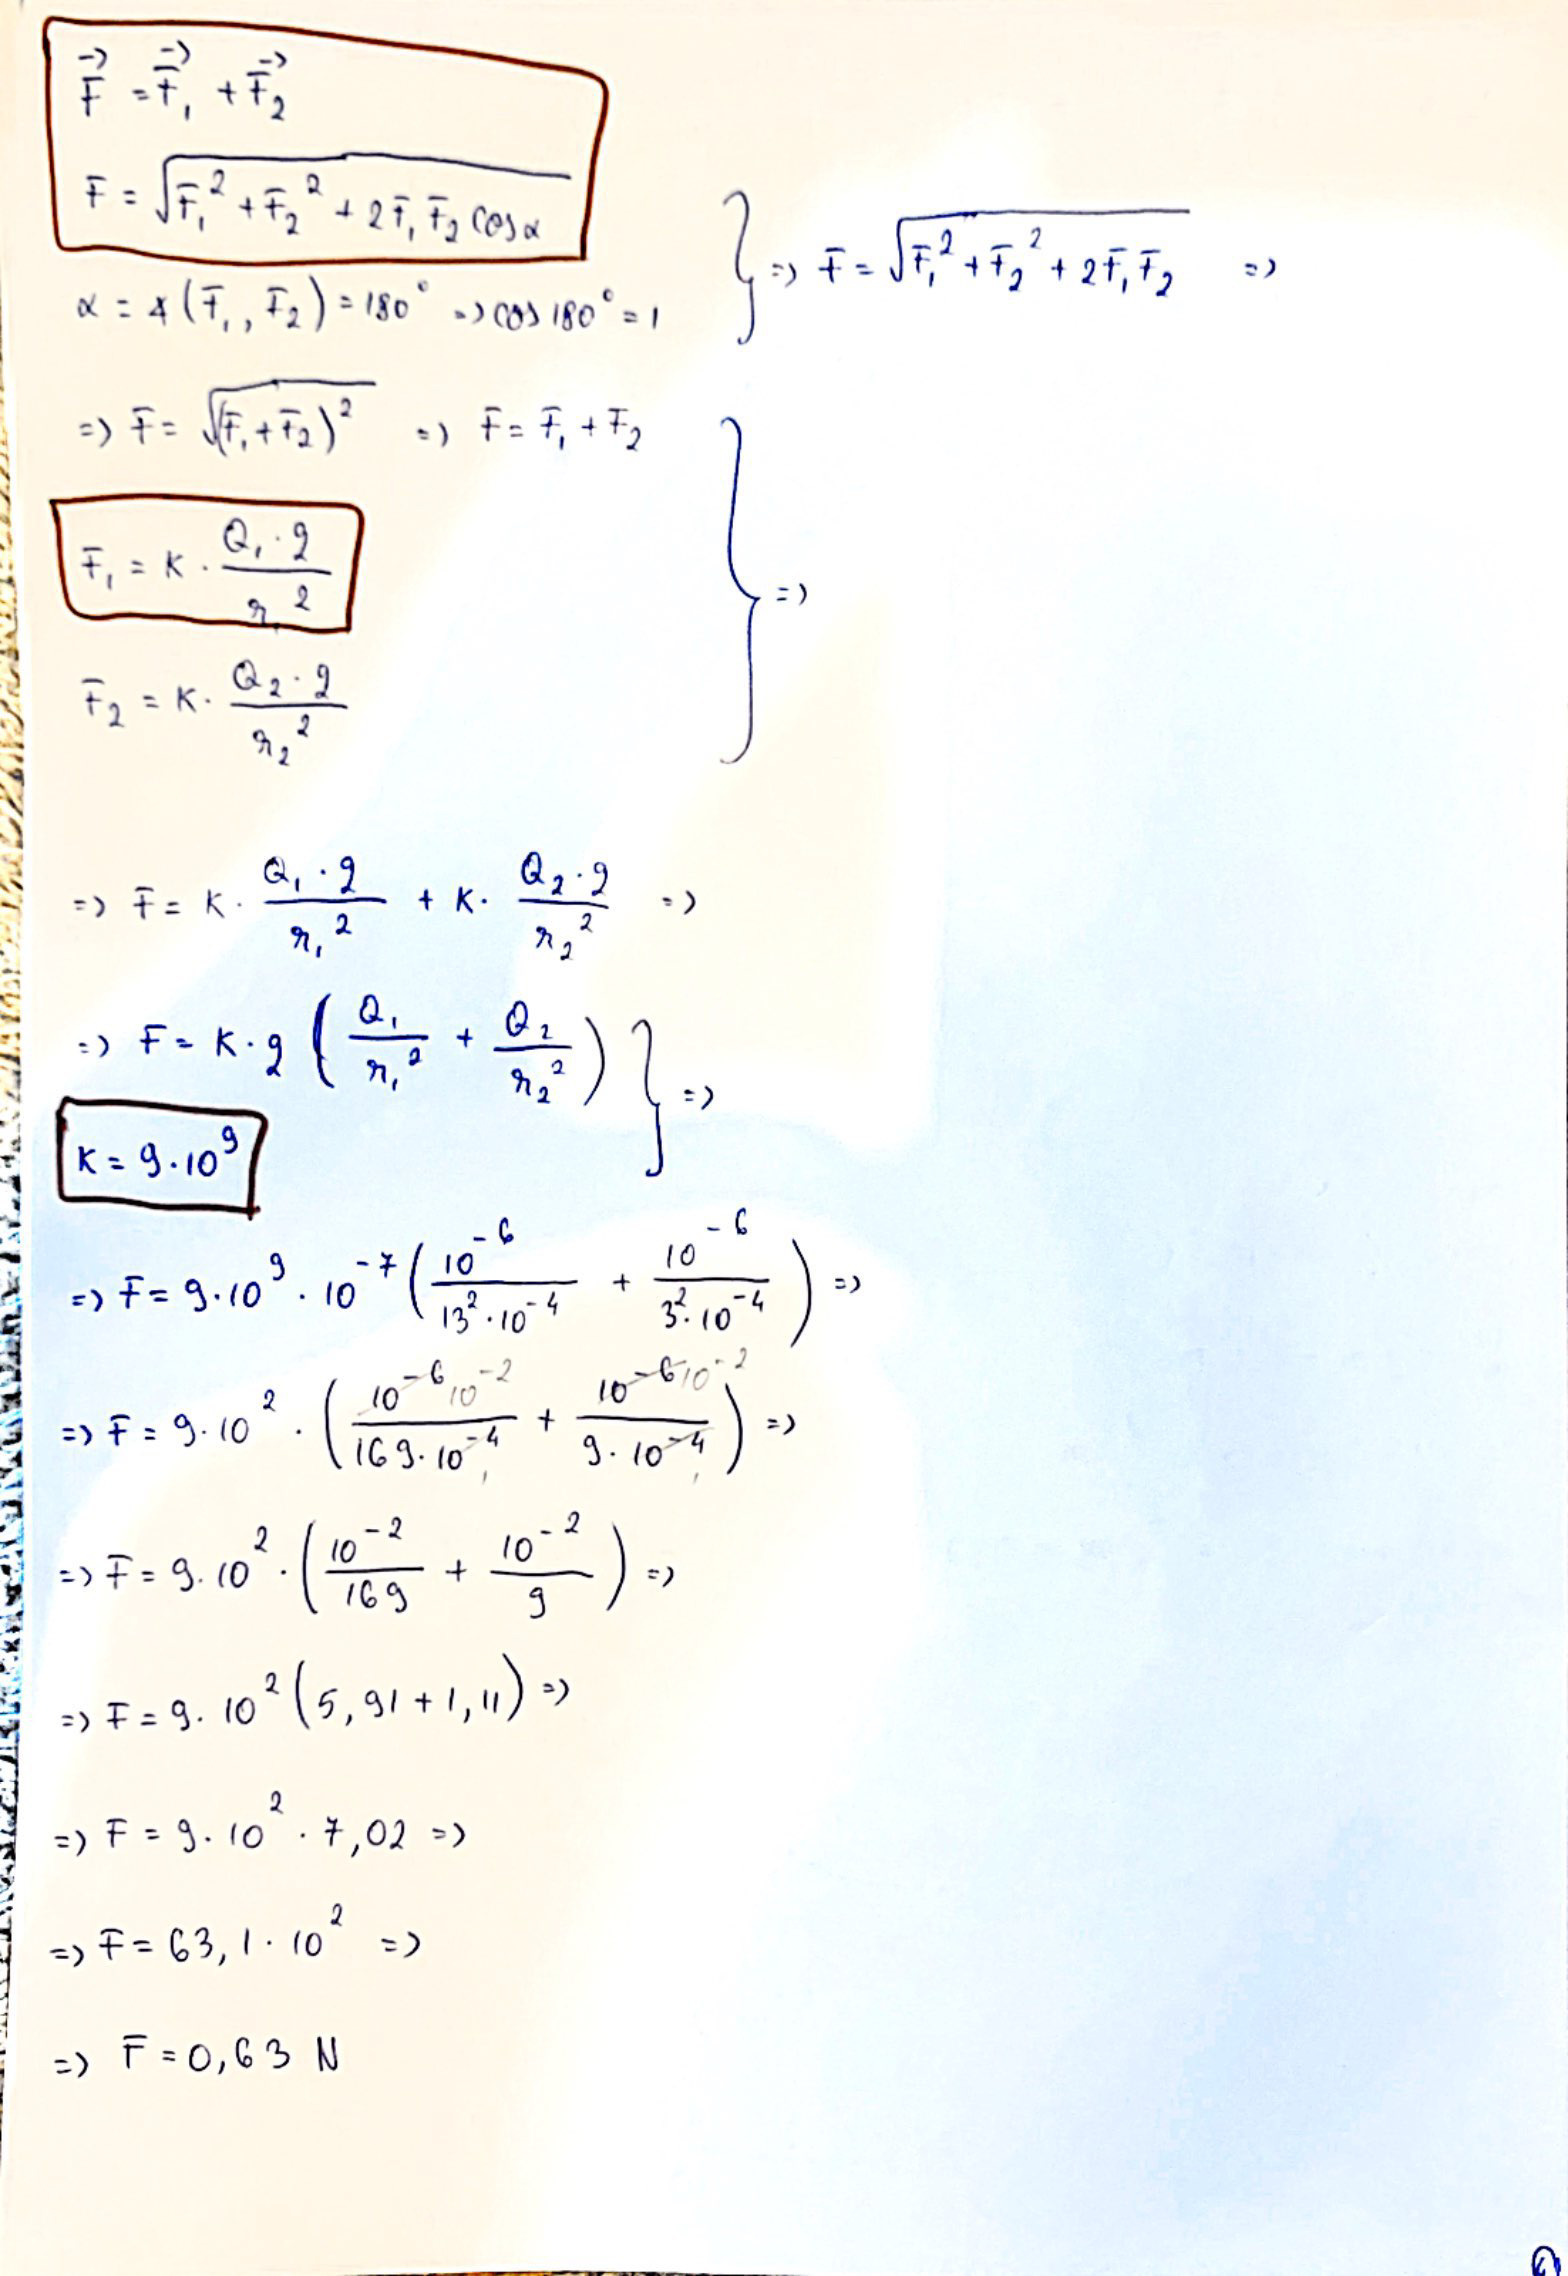 F⃗ = F⃗₁ + F⃗₂
F = √(F₁² + F₂² + 2F₁F₂ cos α)
α = ∢(F₁, F₂) = 180° => cos 180° = 1
} => F = √(F₁² + F₂² + 2F₁F₂) =>
=> F = √((F₁ + F₂)²) => F = F₁ + F₂
F₁ = K · (Q₁ · q)/(r₁²)
} =>
F₂ = K · (Q₂ · q)/(r₂²)
=> F = K · (Q₁ · q)/(r₁²) + K · (Q₂ · q)/(r₂²) =>
=> F = K · q (Q₁/r₁² + Q₂/r₂²) } =>
K = 9 · 10⁹
=> F = 9 · 10⁹ · 10⁻⁷ (10⁻⁶/(13² · 10⁻⁴) + 10⁻⁶/(3² · 10⁻⁴)) =>
=> F = 9 · 10² · (10⁻⁶ 10⁻²/(169 · 10⁻⁴) + 10⁻⁶ 10⁻²/(9 · 10⁻⁴)) =>
=> F = 9 · 10² · (10⁻²/169 + 10⁻²/9) =>
=> F = 9 · 10² (5,91 + 1,11) =>
=> F = 9 · 10² · 7,02 =>
=> F = 63,1 · 10² =>
=> F = 0,63 N